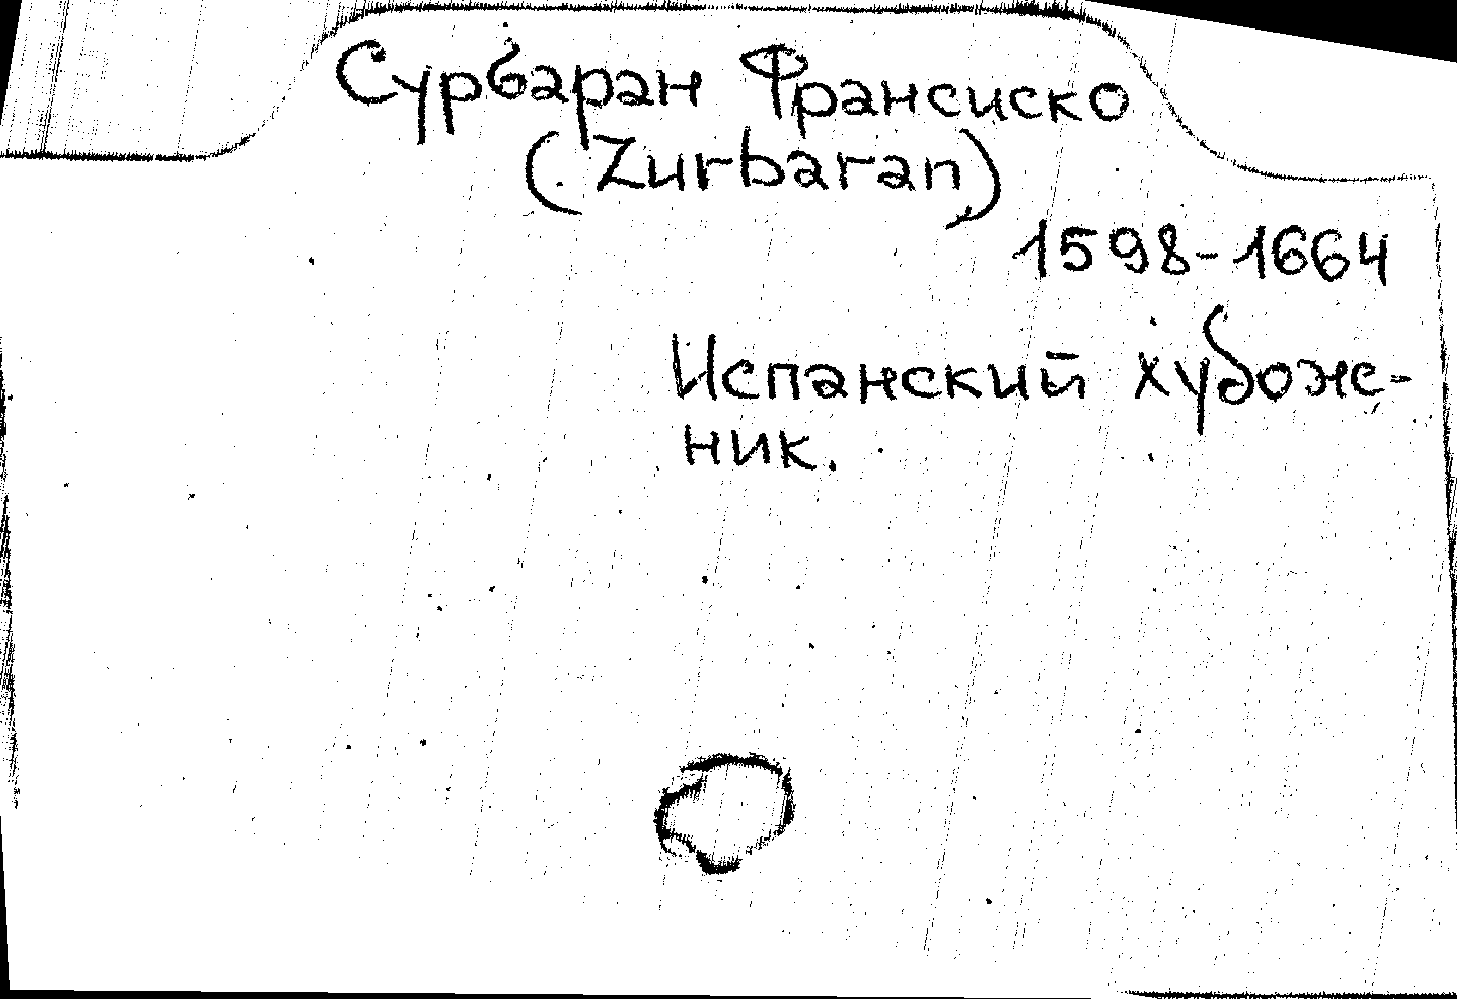 Сурбаран Франсиско
(Zurbaran)
1598-1664
Испанский художе-
ник.